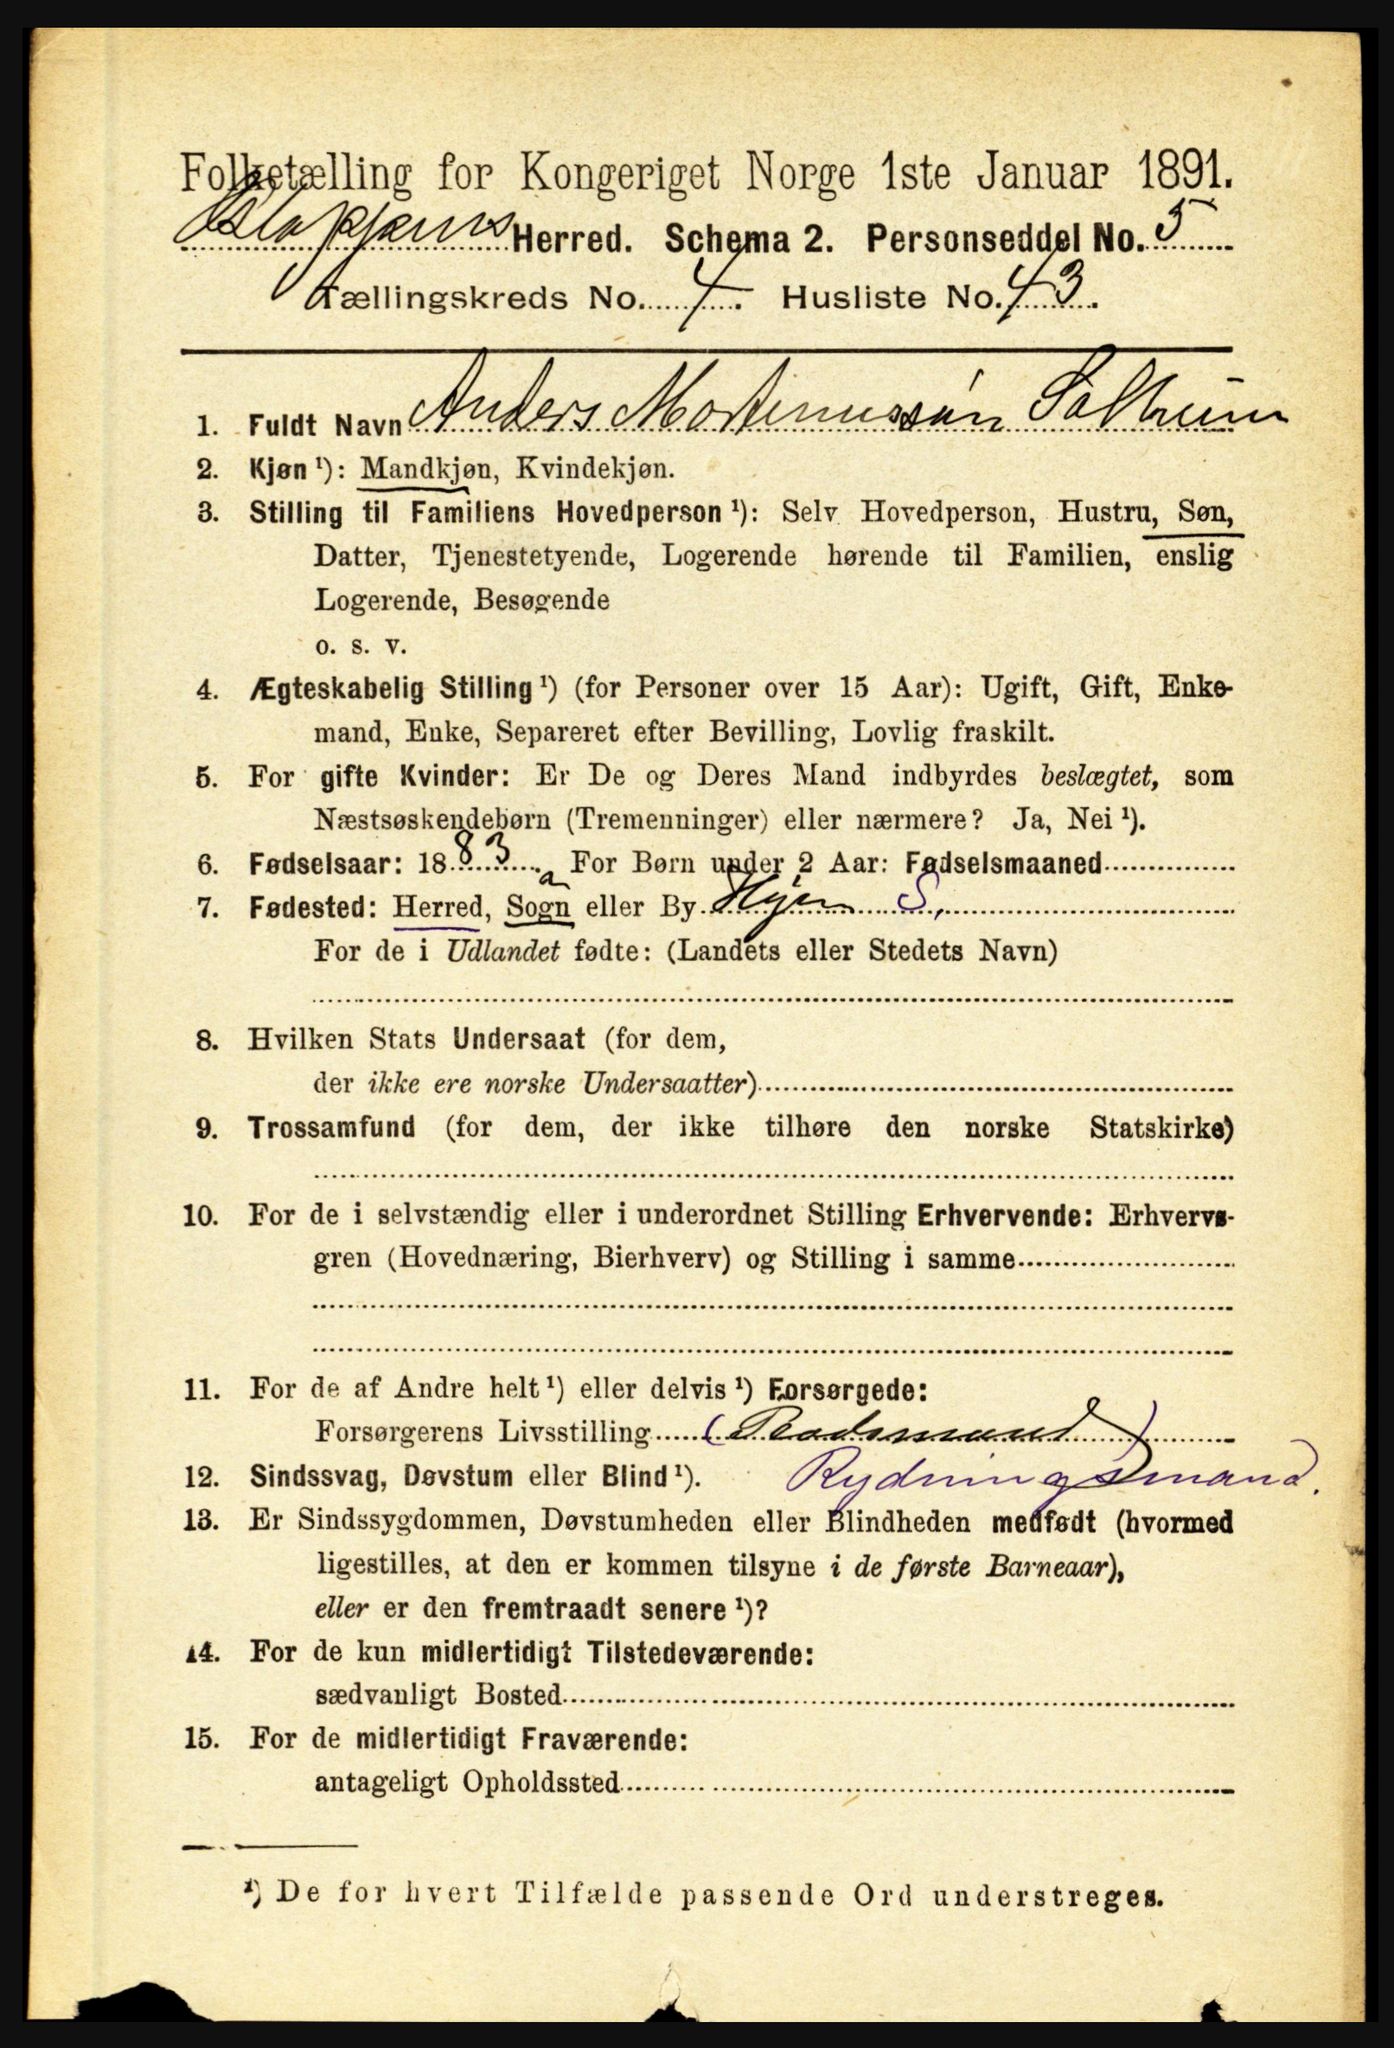 Folketælling for Kongeriget Norge 1ste Januar 1891.
Herred. Schema 2. Personseddel No. 5
Tællingskreds No. 4. Husliste No. 43.
1. Fuldt Navn Anders Mortenussøn Solheim
2. Kjøn ¹): Mandkjøn, Kvindekjøn.
3. Stilling til Familiens Hovedperson ¹): Selv Hovedperson, Hustru, Søn,
Datter, Tjenestetyende, Logerende hørende til Familien, enslig
Logerende, Besøgende
o. s. v.
4. Ægteskabelig Stilling ¹) (for Personer over 15 Aar): Ugift, Gift, Enke-
mand, Enke, Separeret efter Bevilling, Lovlig fraskilt.
5. For gifte Kvinder: Er De og Deres Mand indbyrdes beslægtet, som
Næstsøskendebørn (Tremenninger) eller nærmere? Ja, Nei ¹).
6. Fødselsaar: 1883. For Børn under 2 Aar: Fødselsmaaned
7. Fødested: Herred, Sogn eller By Hyen S,
For de i Udlandet fødte: (Landets eller Stedets Navn)
8. Hvilken Stats Undersaat (for dem,
der ikke ere norske Undersaatter)
9. Trossamfund (for dem, der ikke tilhøre den norske Statskirke)
10. For de i selvstændig eller i underordnet Stilling Erhvervende: Erhvervs-
gren (Hovednæring, Bierhverv) og Stilling i samme
11. For de af Andre helt ¹) eller delvis ¹) Forsørgede:
Forsørgerens Livsstilling (Pladsmand)
12. Sindssvag, Døvstum eller Blind ¹). Rydningsmand.
13. Er Sindssygdommen, Døvstumheden eller Blindheden medfødt (hvormed
ligestilles, at den er kommen tilsyne i de første Barneaar),
eller er den fremtraadt senere ¹)?
14. For de kun midlertidigt Tilstedeværende:
sædvanligt Bosted
15. For de midlertidigt Fraværende:
antageligt Opholdssted
¹) De for hvert Tilfælde passende Ord understreges.